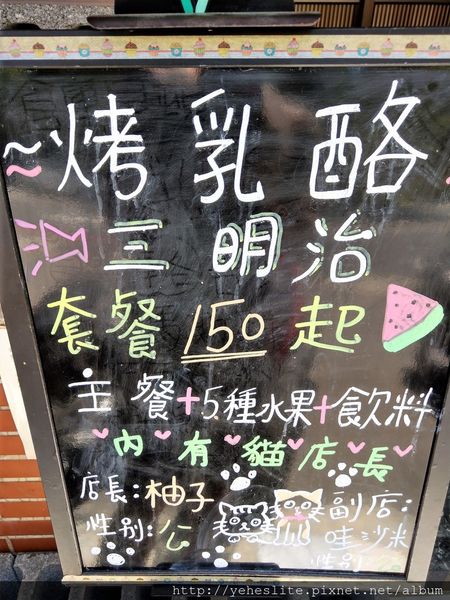 ~烤乳酪
三明治
套餐150起
主餐+5種水果+飲料
內有貓店長
店長:柚子
性別:公
副店:
哇沙米
性別:
http://yeheslite.pixnet.net/album